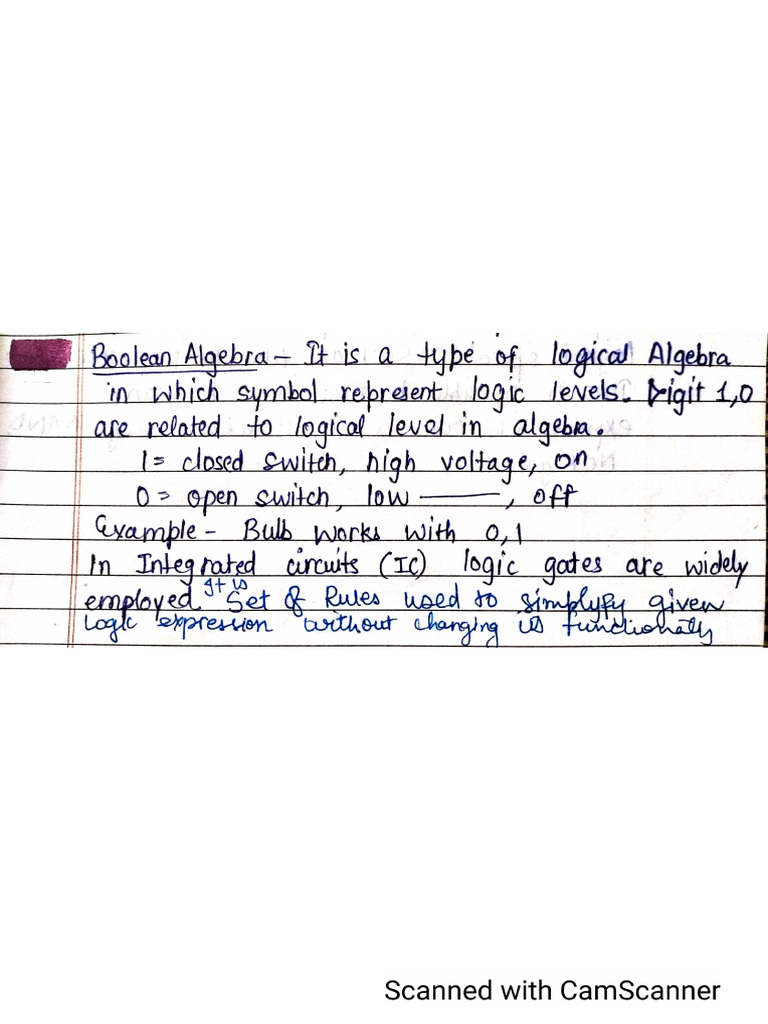 Boolean Algebra - It is a type of logical Algebra
in which symbol represent logic levels. Digit 1,0
are related to logical level in algebra.
1 = closed switch, high voltage, on
0 = open switch, low ———, off
Example - Bulb works with 0,1
In Integrated circuits (IC) logic gates are widely
employed It is Set of Rules used to simplyfy given
logic expression without changing its functionality
Scanned with CamScanner